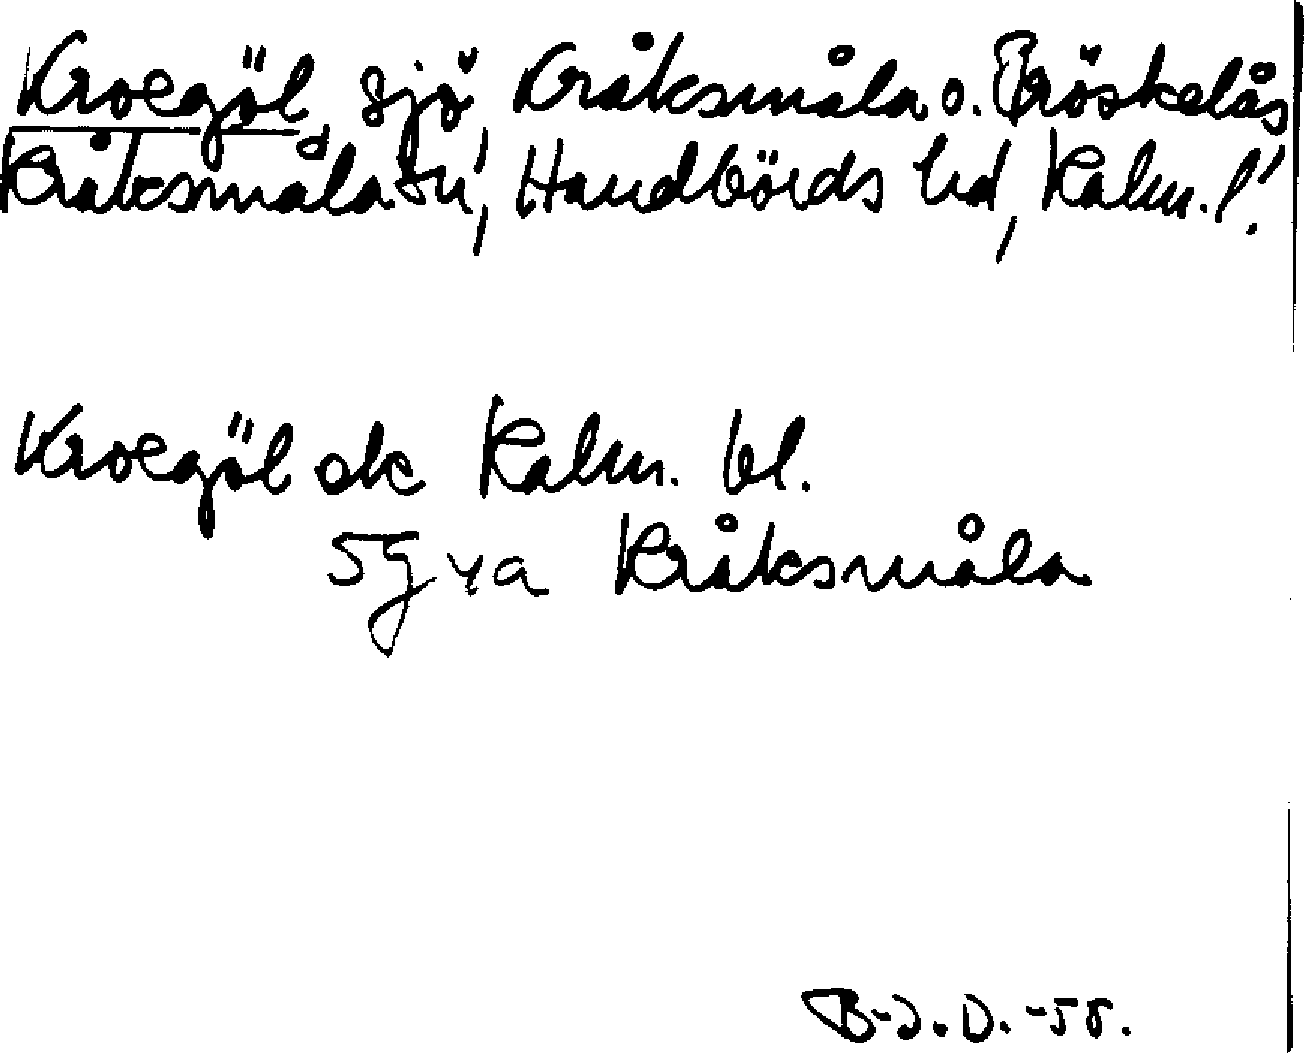 Kroegöl, sjö, Kråksmåla o. Bröskelås
Kråksmåla sn, Handbörds hd, Kalm. l.
Kroegöl ek Kalm. bl.
5G ya Kråksmåla
B-J.D.-58.